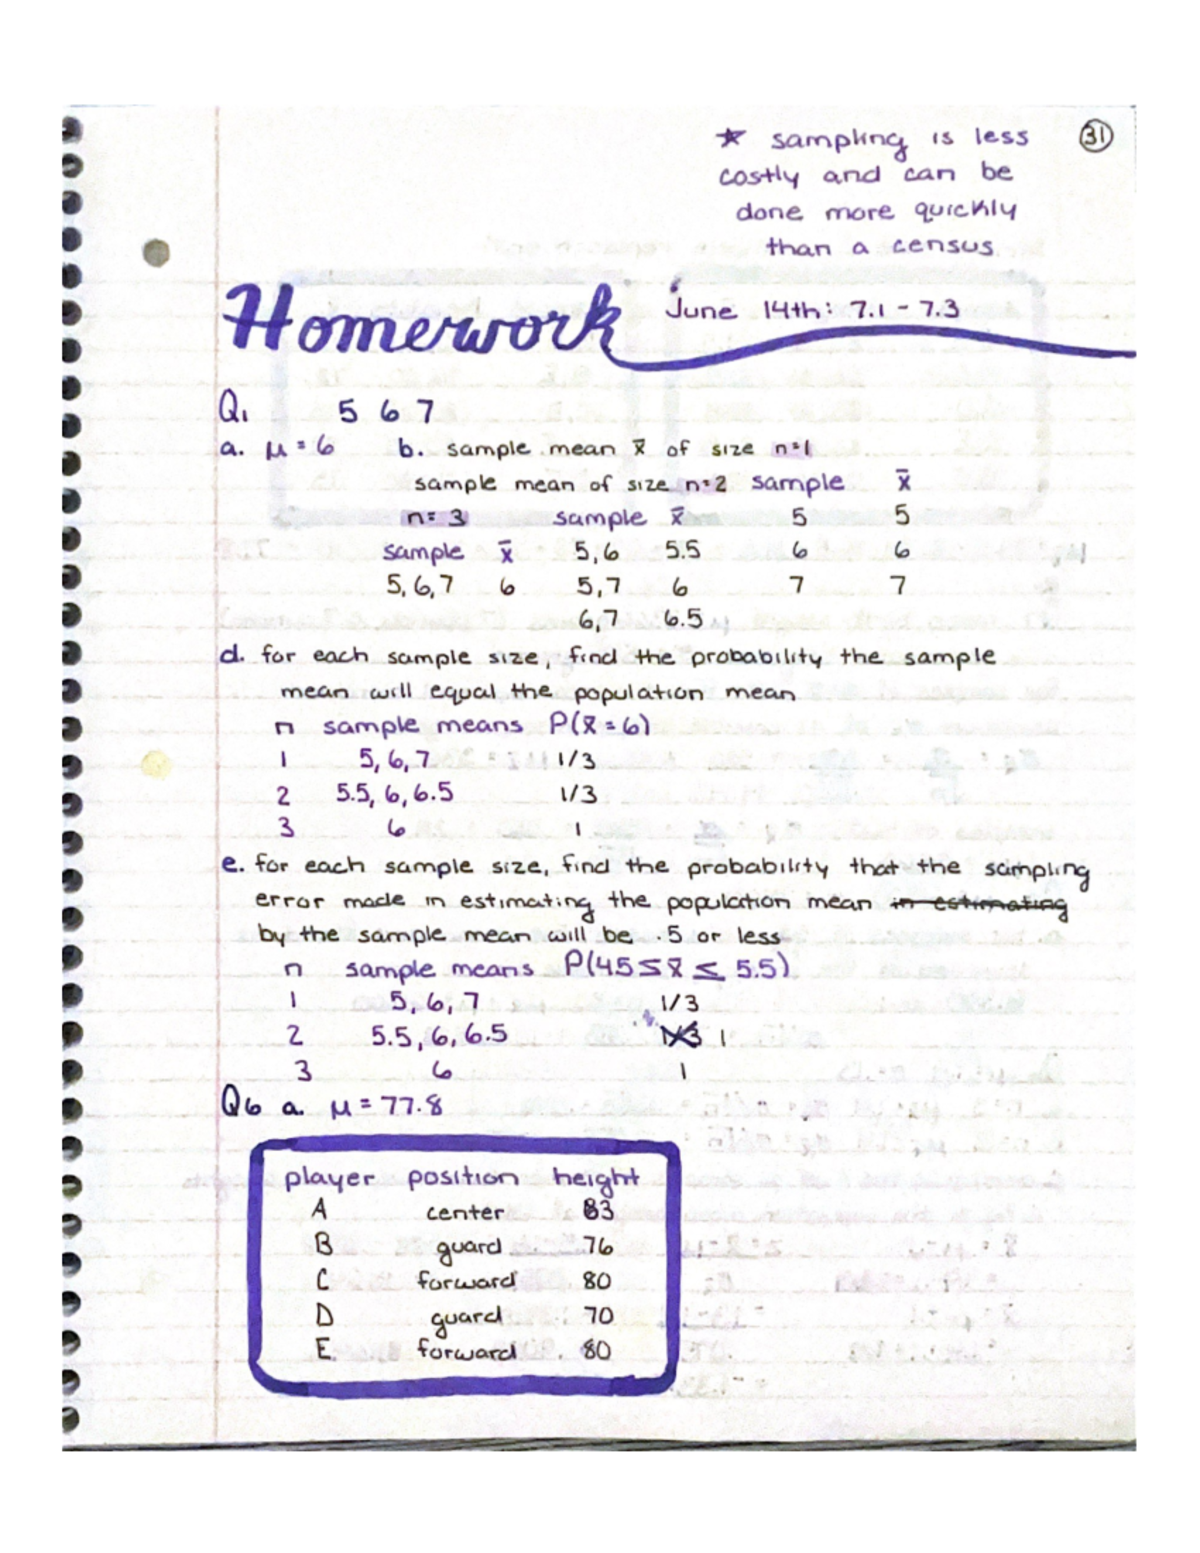 ★ sampling is less
31
costly and can be
done more quickly
than a census
Homework June 14th: 7.1 - 7.3
Q1 5 6 7
a. μ = 6 b. sample mean x̄ of size n=1
sample mean of size n=2 sample x̄
n=3 sample x̄ 5 5
sample x̄ 5,6 5.5 6 6
5,6,7 6 5,7 6 7 7
6,7 6.5
d. for each sample size, find the probability the sample
mean will equal the population mean
n sample means P(x̄ = 6)
1 5, 6, 7 1/3
2 5.5, 6, 6.5 1/3
3 6 1
e. for each sample size, find the probability that the sampling
error made in estimating the population mean in estimating
by the sample mean will be .5 or less
n sample means P(45 ≤ x̄ ≤ 5.5)
1 5, 6, 7 1/3
2 5.5, 6, 6.5 1/3 1
3 6 1
Q6 a. μ = 77.8
player position height
A center 83
B guard 76
C forward 80
D guard 70
E forward 80